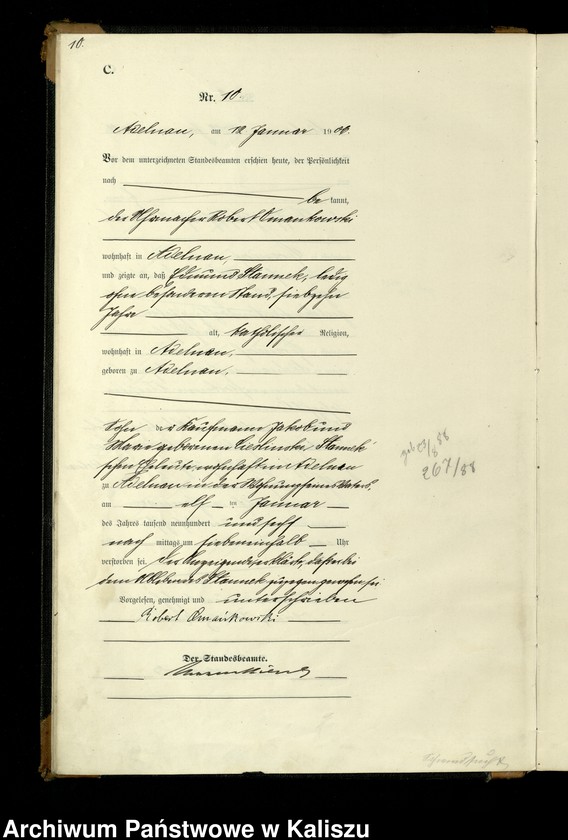 10.
C.
Nr. 10.
Adelnau, am 12 Januar 1906.
Vor dem unterzeichneten Standesbeamten erschien heute, der Persönlichkeit
nach
be kannt,
der Uhrmacher Robert Omankowski
wohnhaft in Adelnau,
und zeigte an, daß Edmund Stannek, ledig
ohne besonderen Stand, siebzehn
Jahre
alt, katholischer Religion,
wohnhaft in Adelnau,
geboren zu Adelnau,
Sohn der Kaufmann Jakob und
Marie geborenen Cieslinski, Stannek
schen Eheleute, wohnhaft in Adelnau
zu Adelnau in der Wohnung seines Vaters,
am elf ten Januar
des Jahrs tausend neunhundert und sechs
nach mittags um siebeneinhalb Uhr
verstorben sei. Der Anzeigende erklärt, daß er bei
dem Ableben des Stannek zugegen gewesen sei
Vorgelesen, genehmigt und unterschrieben
Robert Omańkowski
Der Standesbeamte.
geb 23/8 88
267/88
Archiwum Państwowe w Kaliszu